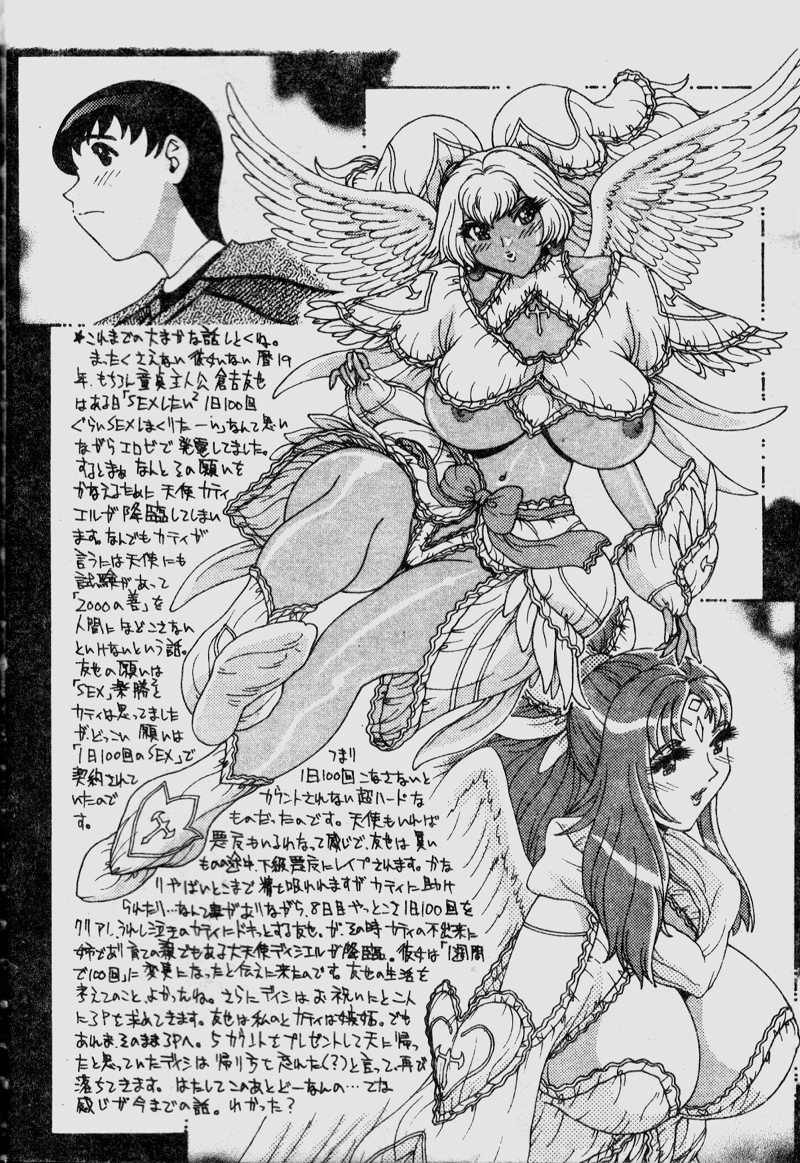 *これまでの大まかな話しとくね。
またくさえない彼女いない暦19
年、もちろん童貞主人公 倉吉友也
はある日「SEXしたい² 1日100回
ぐらいSEXしまくりたーい」なんて思い
ながらエロゼで発電してました。
するとまぁなんとその願いを
かなえるために天使カティ
エルが降臨してしまい
ます。なんでもカティが
言うには天使にも
試験があって
「2000の善」を
人間にほどこさない
といけないという話。
友也の願いは
「SEX」楽勝と
カティは思ってました
が、どっこい願いは
「1日100回のSEX」で
契約されて
いたので
す。
つまり
1日100回こなさないと
カウントされない超ハードな
ものだったのです。天使もいれば
悪魔もいるわなって感じで、友也は買い
もの途中、下級悪魔にレイプされます。かな
りやばいとこまで精を吸われますがカティに助け
られたり…なんて事がありながら、8日目やっとこさ1日100回を
クリア!、うれし泣きのカティにドキッとする友也、が、その時カティの不出来に
姉であり育ての親でもある大天使ディシエルが降臨。彼女は「1週間
で100回」に変更になったと伝えに来たのです 友也の生活を
考えてのこと、よかったね。さらにディシはお祝いにと二人
に3Pを求めてきます。友也は私のとカティは嫉妬。でも
あれよ²そのまま3Pへ。5カウントもプレゼントして天に帰っ
たと思っていたディシは帰り方を忘れた(?)と言って再び
落ちてきます。はたしてこのあとどーなんの…てな
感じが今までの話。わかった?